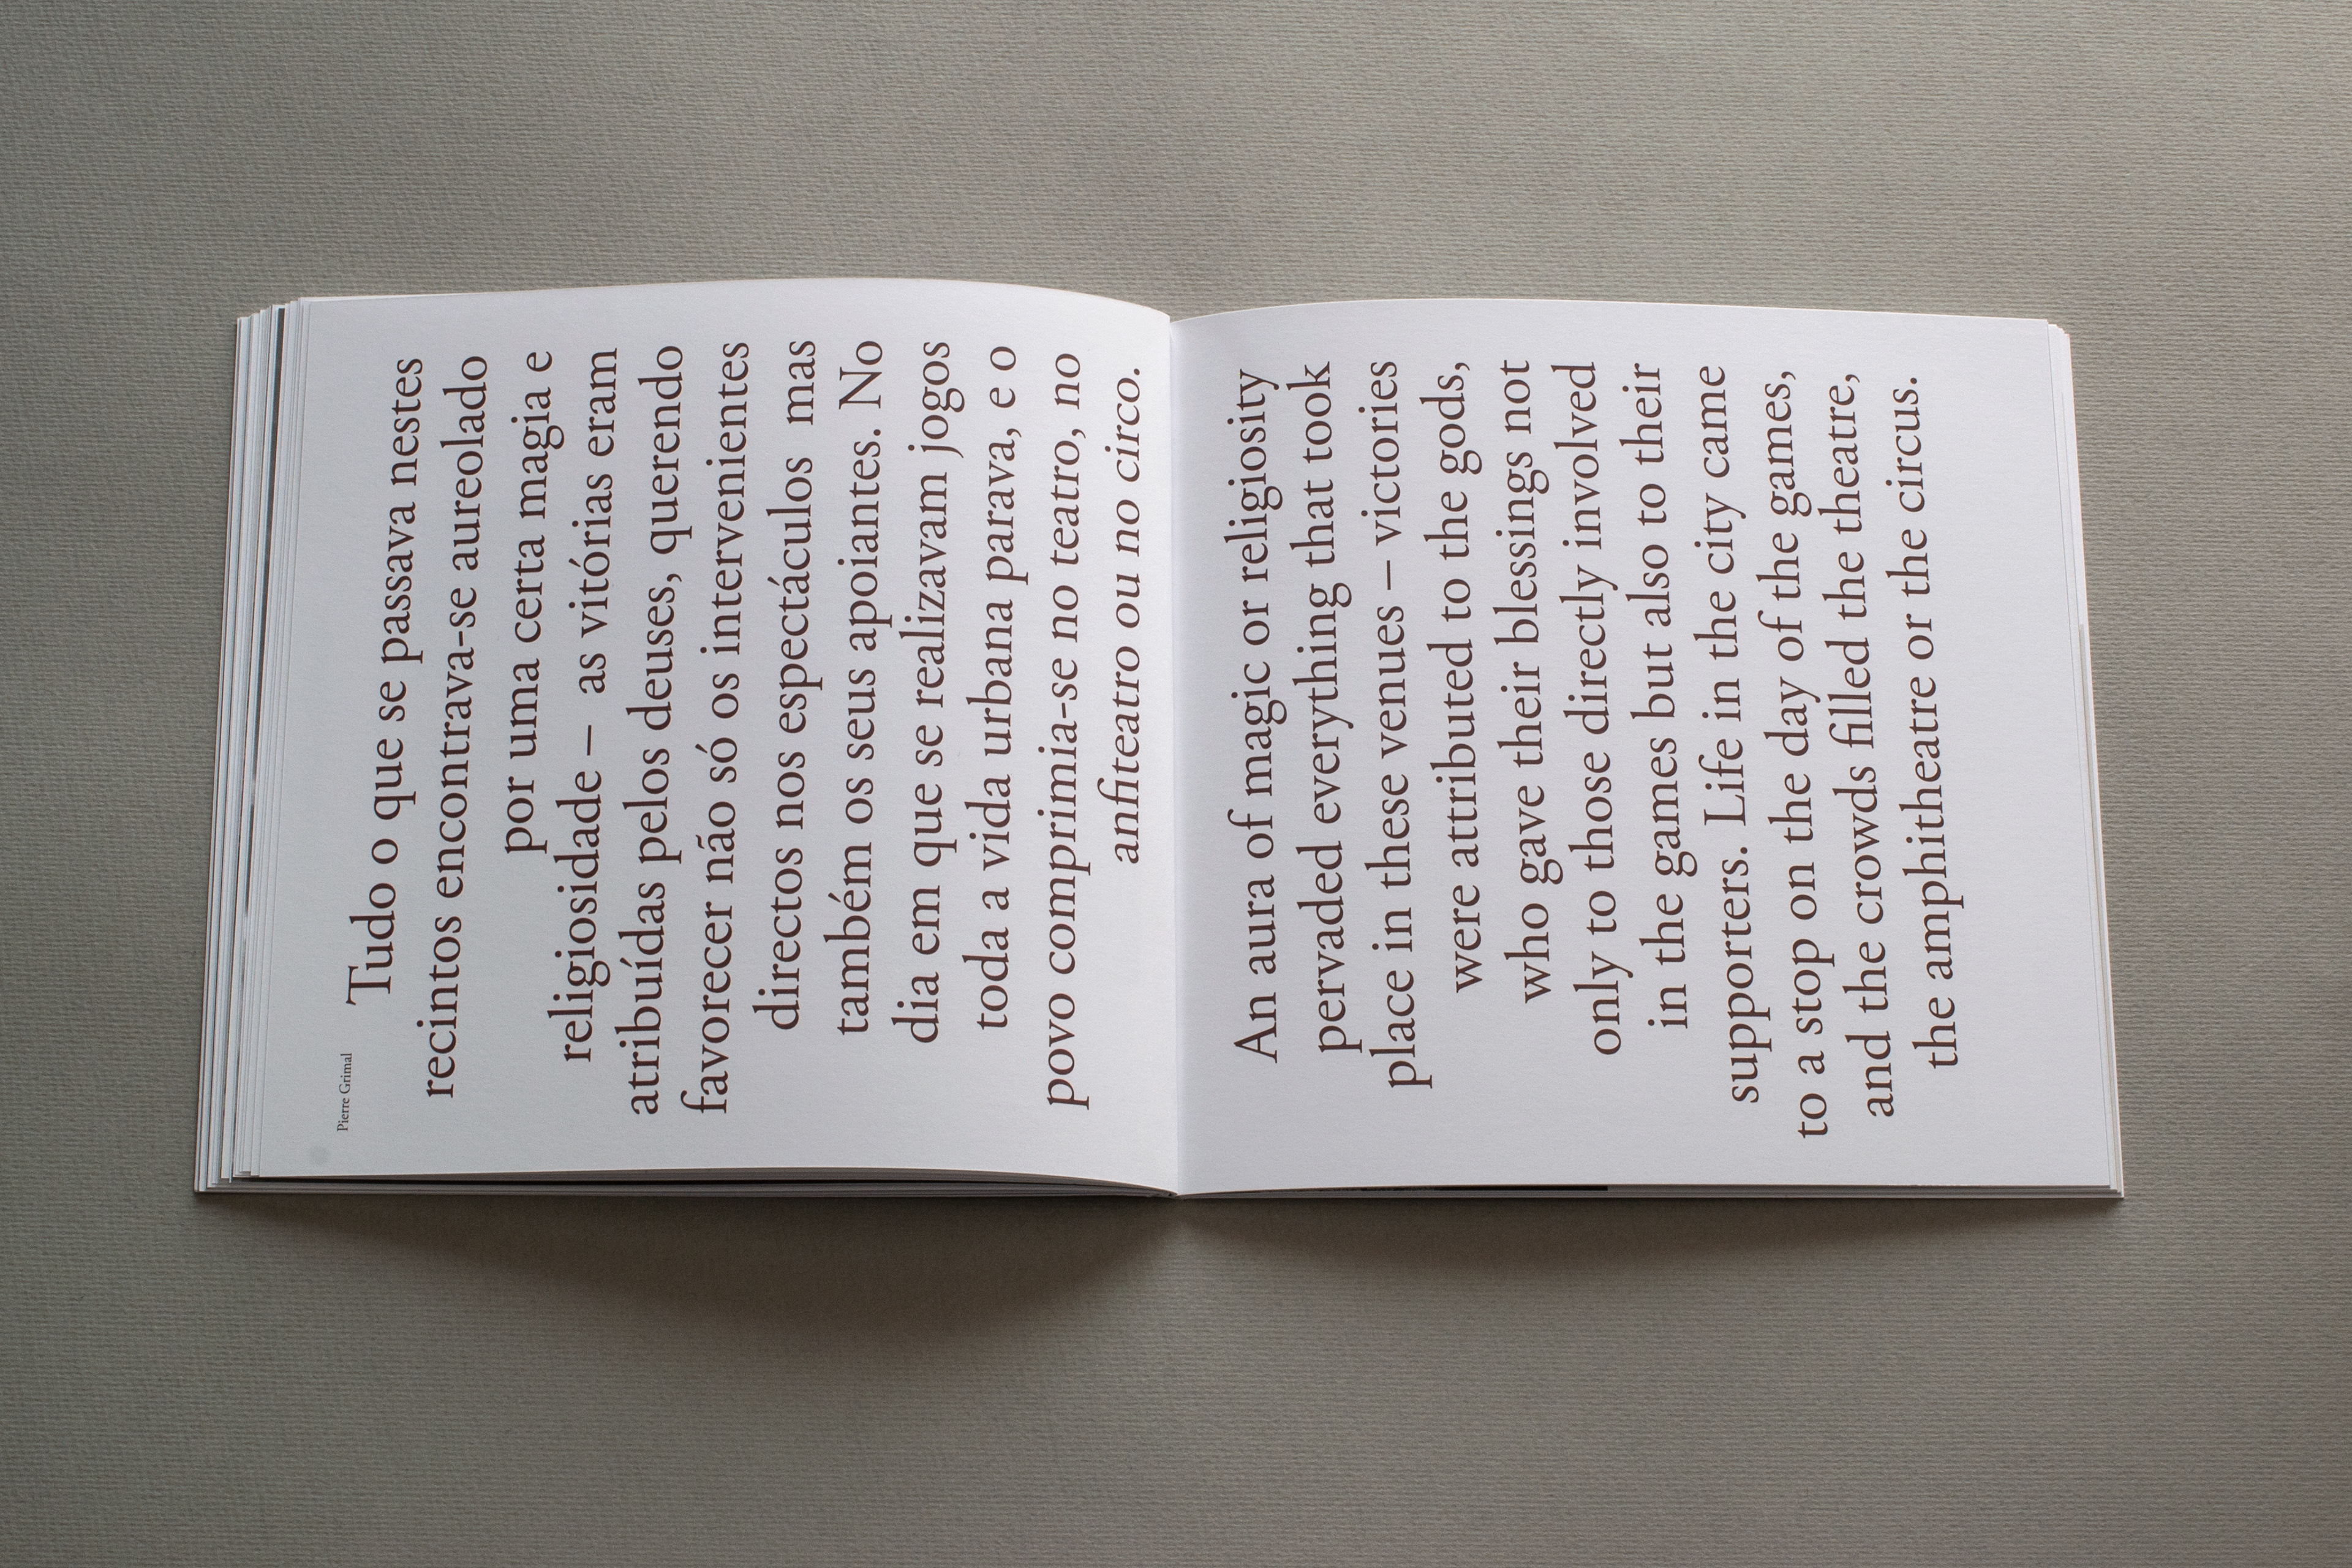 Pierre Grimal
Tudo o que se passava nestes
recintos encontrava-se aureolado
por uma certa magia e
religiosidade – as vitórias eram
atribuídas pelos deuses, querendo
favorecer não só os intervenientes
directos nos espectáculos mas
também os seus apoiantes. No
dia em que se realizavam jogos
toda a vida urbana parava, e o
povo comprimia-se no teatro, no
anfiteatro ou no circo.
An aura of magic or religiosity
pervaded everything that took
place in these venues – victories
were attributed to the gods,
who gave their blessings not
only to those directly involved
in the games but also to their
supporters. Life in the city came
to a stop on the day of the games,
and the crowds filled the theatre,
the amphitheatre or the circus.